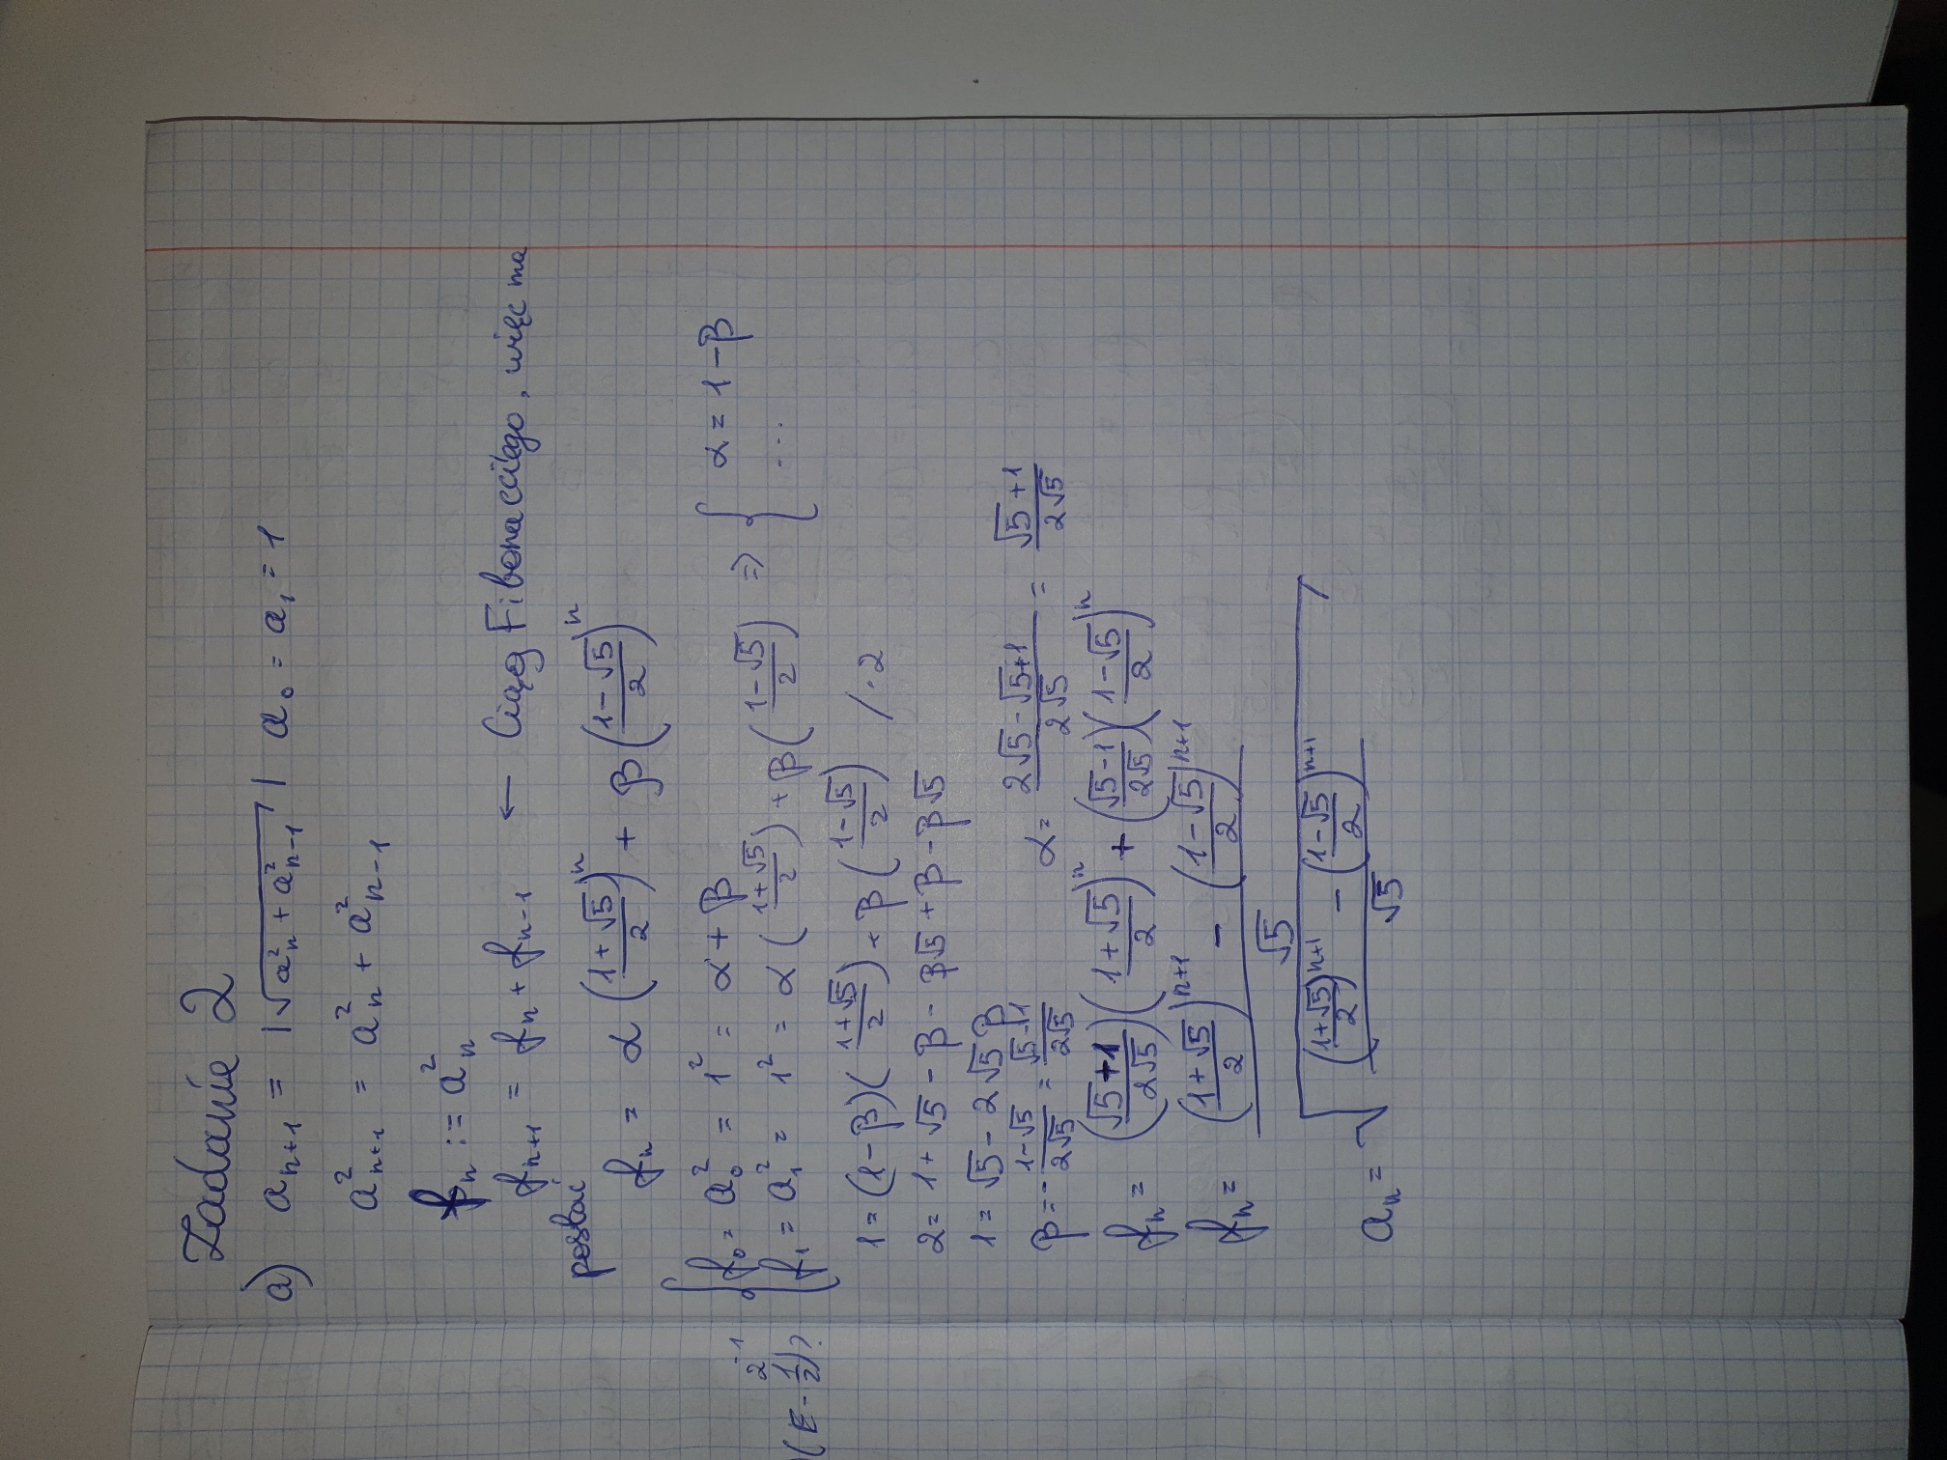 Zadanie 2
a) aₙ₊₁ = |√(aₙ² + aₙ₋₁²)| a₀ = a₁ = 1
aₙ₊₁² = aₙ² + aₙ₋₁²
fₙ := aₙ²
fₙ₊₁ = fₙ + fₙ₋₁ ← Ciąg Fibonacciego, więc ma
postać
fₙ = α ((1+√5)/2)ⁿ + β ((1-√5)/2)ⁿ
{ f₀ = a₀² = 1² = α + β ⇒ { α = 1 - β
f₁ = a₁² = 1² = α ((1+√5)/2) + β ((1-√5)/2) ...
2⁻¹
(E - 1/2)?
1 = (1-β)((1+√5)/2) + β ((1-√5)/2) /·2
2 = 1 + √5 - β - β√5 + β - β√5
1 = √5 - 2√5 β
β = -(1-√5)/(2√5) = (√5-1)/(2√5) α = (2√5-√5+1)/(2√5) = (√5+1)/(2√5)
fₙ = ((√5+1)/(2√5)) ((1+√5)/2)ⁿ + ((√5-1)/(2√5)) ((1-√5)/2)ⁿ
fₙ = (((1+√5)/2)ⁿ⁺¹ - ((1-√5)/2)ⁿ⁺¹)/√5
aₙ = √((((1+√5)/2)ⁿ⁺¹ - ((1-√5)/2)ⁿ⁺¹)/√5)